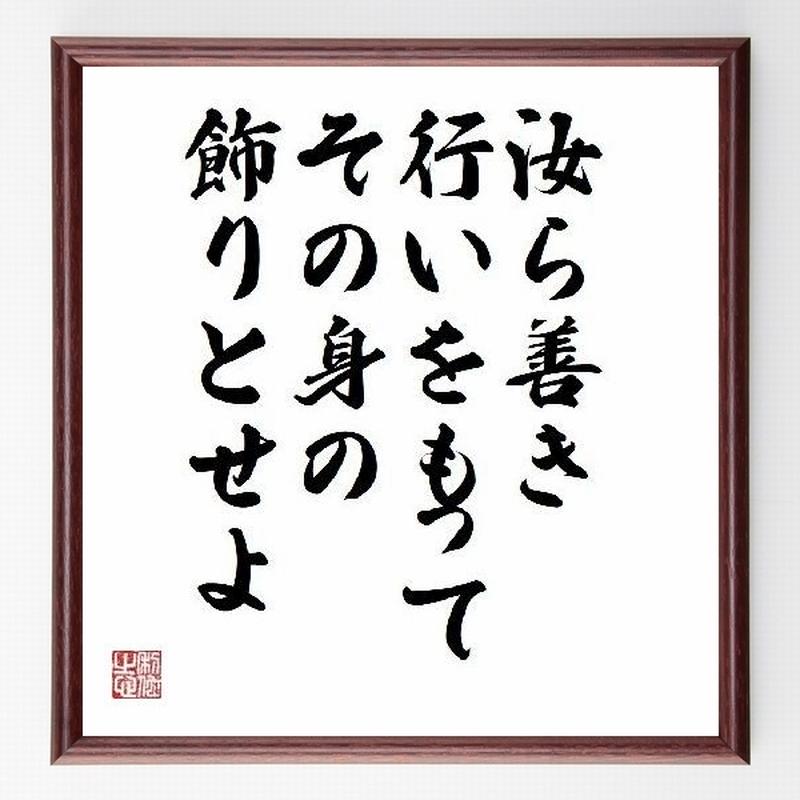 汝ら善き
行いをもって
その身の
飾りとせよ